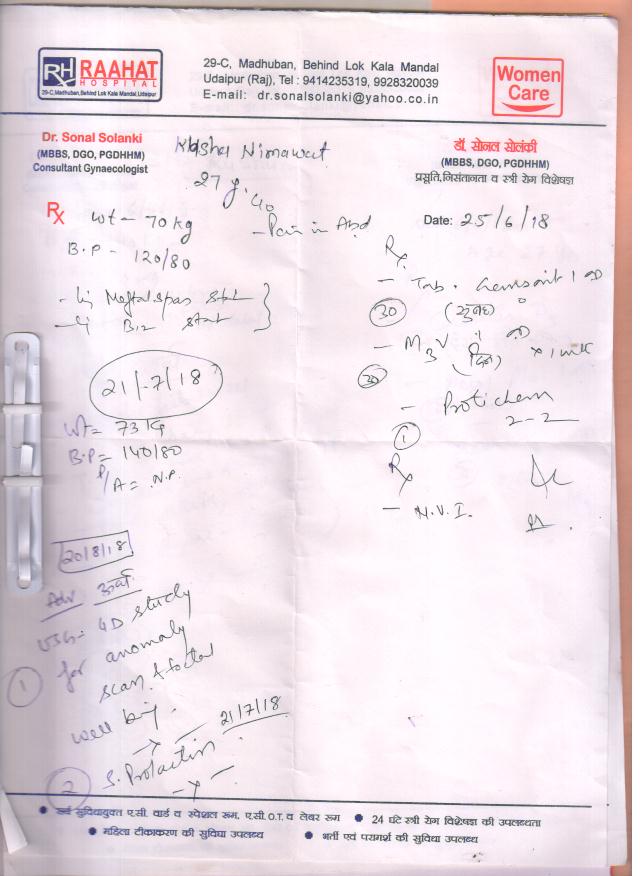 RH RAAHAT
HOSPITAL
29-C, Madhuban, Behind Lok Kala Mandal, Udaipur
29-C, Madhuban, Behind Lok Kala Mandal
Udaipur (Raj), Tel : 9414235319, 9928320039
E-mail: dr.sonalsolanki@yahoo.co.in
Women
Care
Dr. Sonal Solanki
(MBBS, DGO, PGDHHM)
Consultant Gynaecologist
Nimawat
27 y.
डॉ. सोनल सोलंकी
(MBBS, DGO, PGDHHM)
प्रसूति,निसंतानता व स्त्री रोग विशेषज्ञ
Date: 25/6/18
Rx
Wt - 70 kg
B.P - 120/80
c/o - Pain in Abd
- Inj Meftalspas stat
- Inj B12 stat
Rx
- Tab. 1 OD
30 (सुबह)
- M3V OD x 1 mth
30 (दिन)
- Protichem
2-2
1
21/7/18
Wt = 73 Kg
B.P = 140/80
P/A = N.P.
Rx
- N.V.I.
20/8/18
Adv
USG - 4D study
for anomaly
scan & foetal
well being.
1
21/7/18
2 S. Prolactin
सर्व सुविधायुक्त ए.सी. वार्ड व स्पेशल रूम, ए.सी.O.T. व लेबर रूम • 24 घंटे स्त्री रोग विशेषज्ञ की उपलब्धता
• महिला टीकाकरण की सुविधा उपलब्ध • भर्ती एवं परामर्श की सुविधा उपलब्ध